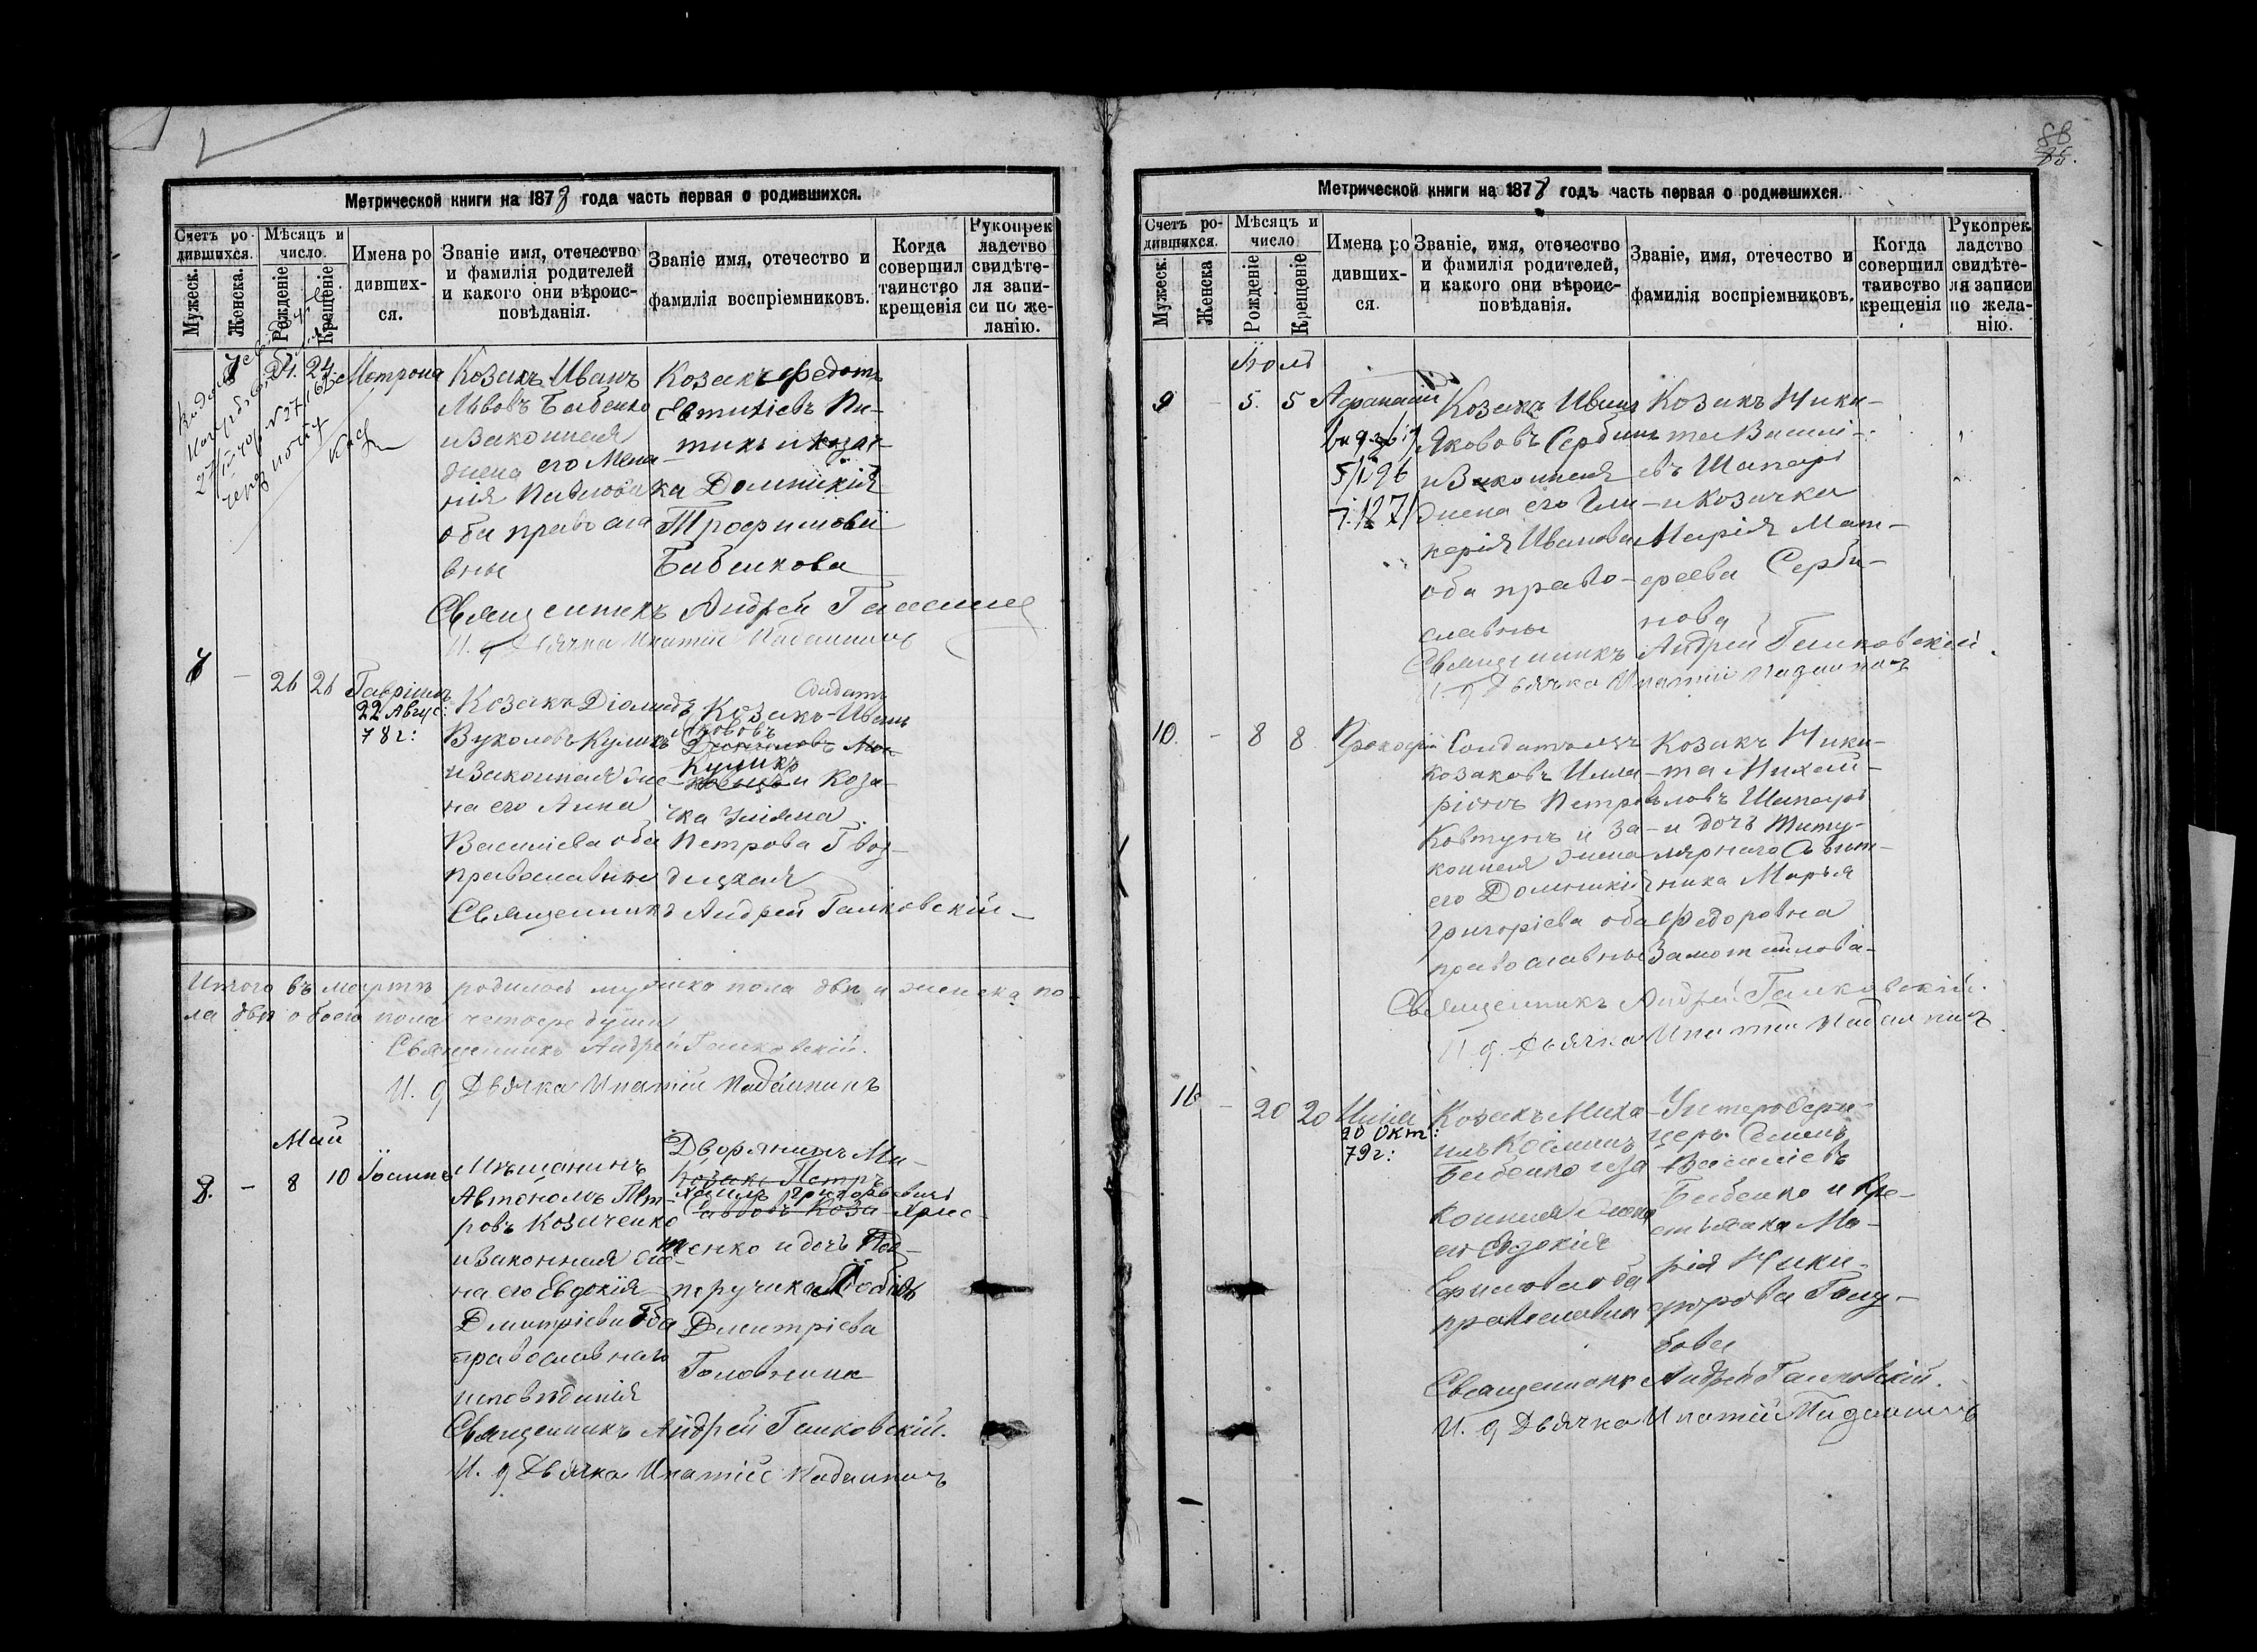 Метрической книги на 1878 года часть первая о родившихся.
Счетъ ро-
дившихся.
Мѣсяцъ и
число.
Мужеск.
Женска.
Рожденіе
Крещеніе
Имена ро
дивших-
ся.
Званіе имя, отечество
и фамилія родителей
и какого они вѣроис-
повѣданія.
Званіе имя, отечество и
фамилія воспріемниковъ.
Когда
совершил
таинство
крещенія
Рукоприк
ладство
свидѣте-
ля запи-
си по же-
ланію.
7
21. 24.
Матрона
Козакъ Иванъ
Львовъ Бабенко
и законная
жена его Мела-
нія Павлова
оба правосла
вны
Козакъ Федотъ
Евтихіевъ Пи-
тикъ и козач-
ка Домникія
Трофимова
Бабенкова
Священникъ Андрей
И. д Дьячка Ипатій
7 - 26 26
Гавріилъ
22 Авгус:
78 г:
Козакъ Діомидъ
Вуколовъ Куликъ
и законная же-
на его Анна
Васильева оба
православны
Солдатъ
Козакъ Иванъ
Яковъ
Куликъ
и Коза-
чка Уліяна
Петрова Гвоз-
дицкая
Священникъ Андрей Галковскій
Итого въ мартѣ родилось мужска пола два и женска по-
ла двѣ обоего пола четыре души
Священникъ Андрей Галковскій.
И. д Дьячка Ипатій
Май
8. - 8 10
Іоаннъ
Мѣщанинъ
Автономъ Пет-
ровъ Козаченко
и законная же-
на его Евдокія
Дмитріева оба
православнаго
исповѣданія
Дворянинъ Ми-
Козакъ Петръ
хаилъ Григорьевичъ
Саввовъ Коза Хрис-
тенко и дочь Под-
поручика
Дмитріева
Священникъ Андрей Галковскій.
И. д Дьячка Ипатій
88
85.
Метрической книги на 1878 годъ часть первая о родившихся.
Счетъ ро-
дившихся.
Мѣсяцъ и
число
Мужеск.
Женска
Рожденіе
Крещеніе
Имена ро
дивших-
ся.
Званіе, имя, отечество
и фамилія родителей,
и какого они вѣроис-
повѣданія.
Званіе, имя, отечество и
фамилія воспріемниковъ.
Когда
совершил
таивство
крещенія
Рукоприк
ладство
свидѣте-
ля записи
по жела-
нію.
Іюль
9 - 5. 5
Афанасій
Козакъ Иванъ
Яковъ Сербинъ
и законная
жена его Гли-
керія Иванова
оба право-
славны
Козакъ Ники-
та Василі-
евъ Шапарь
и козачка
Марія Мат-
феева Серби-
нова
Священникъ Андрей Галковскій.
И. д Дьячка Ипатій
10. - 8 8
Прокофій
Солдатъ изъ
козаковъ Илла-
ріонъ Петровъ
Ковтунъ и за-
конная жена
его Домникія
Григоріева оба
православны
Козакъ Ники-
та Михай-
ловъ Шапарь
и дочь титу-
лярнаго Совѣт-
ника Марья
Федоровна
Замотайлова
Священникъ Андрей Галковскій.
И. д. Дьячка Ипатій
11 - 20 20
Илія
20 Окт:
79 г:
Козакъ Миха-
илъ Косминъ
Бабенко и за
конная жена
его Евдокія
Ефимова оба
православны
Унтерофи-
церъ
Василіевъ
Бабенко и кре-
стьянка Ма-
рія Ники-
форова Голу-
бова
Священникъ Андрей Галковскій.
И. д Дьячка Ипатій